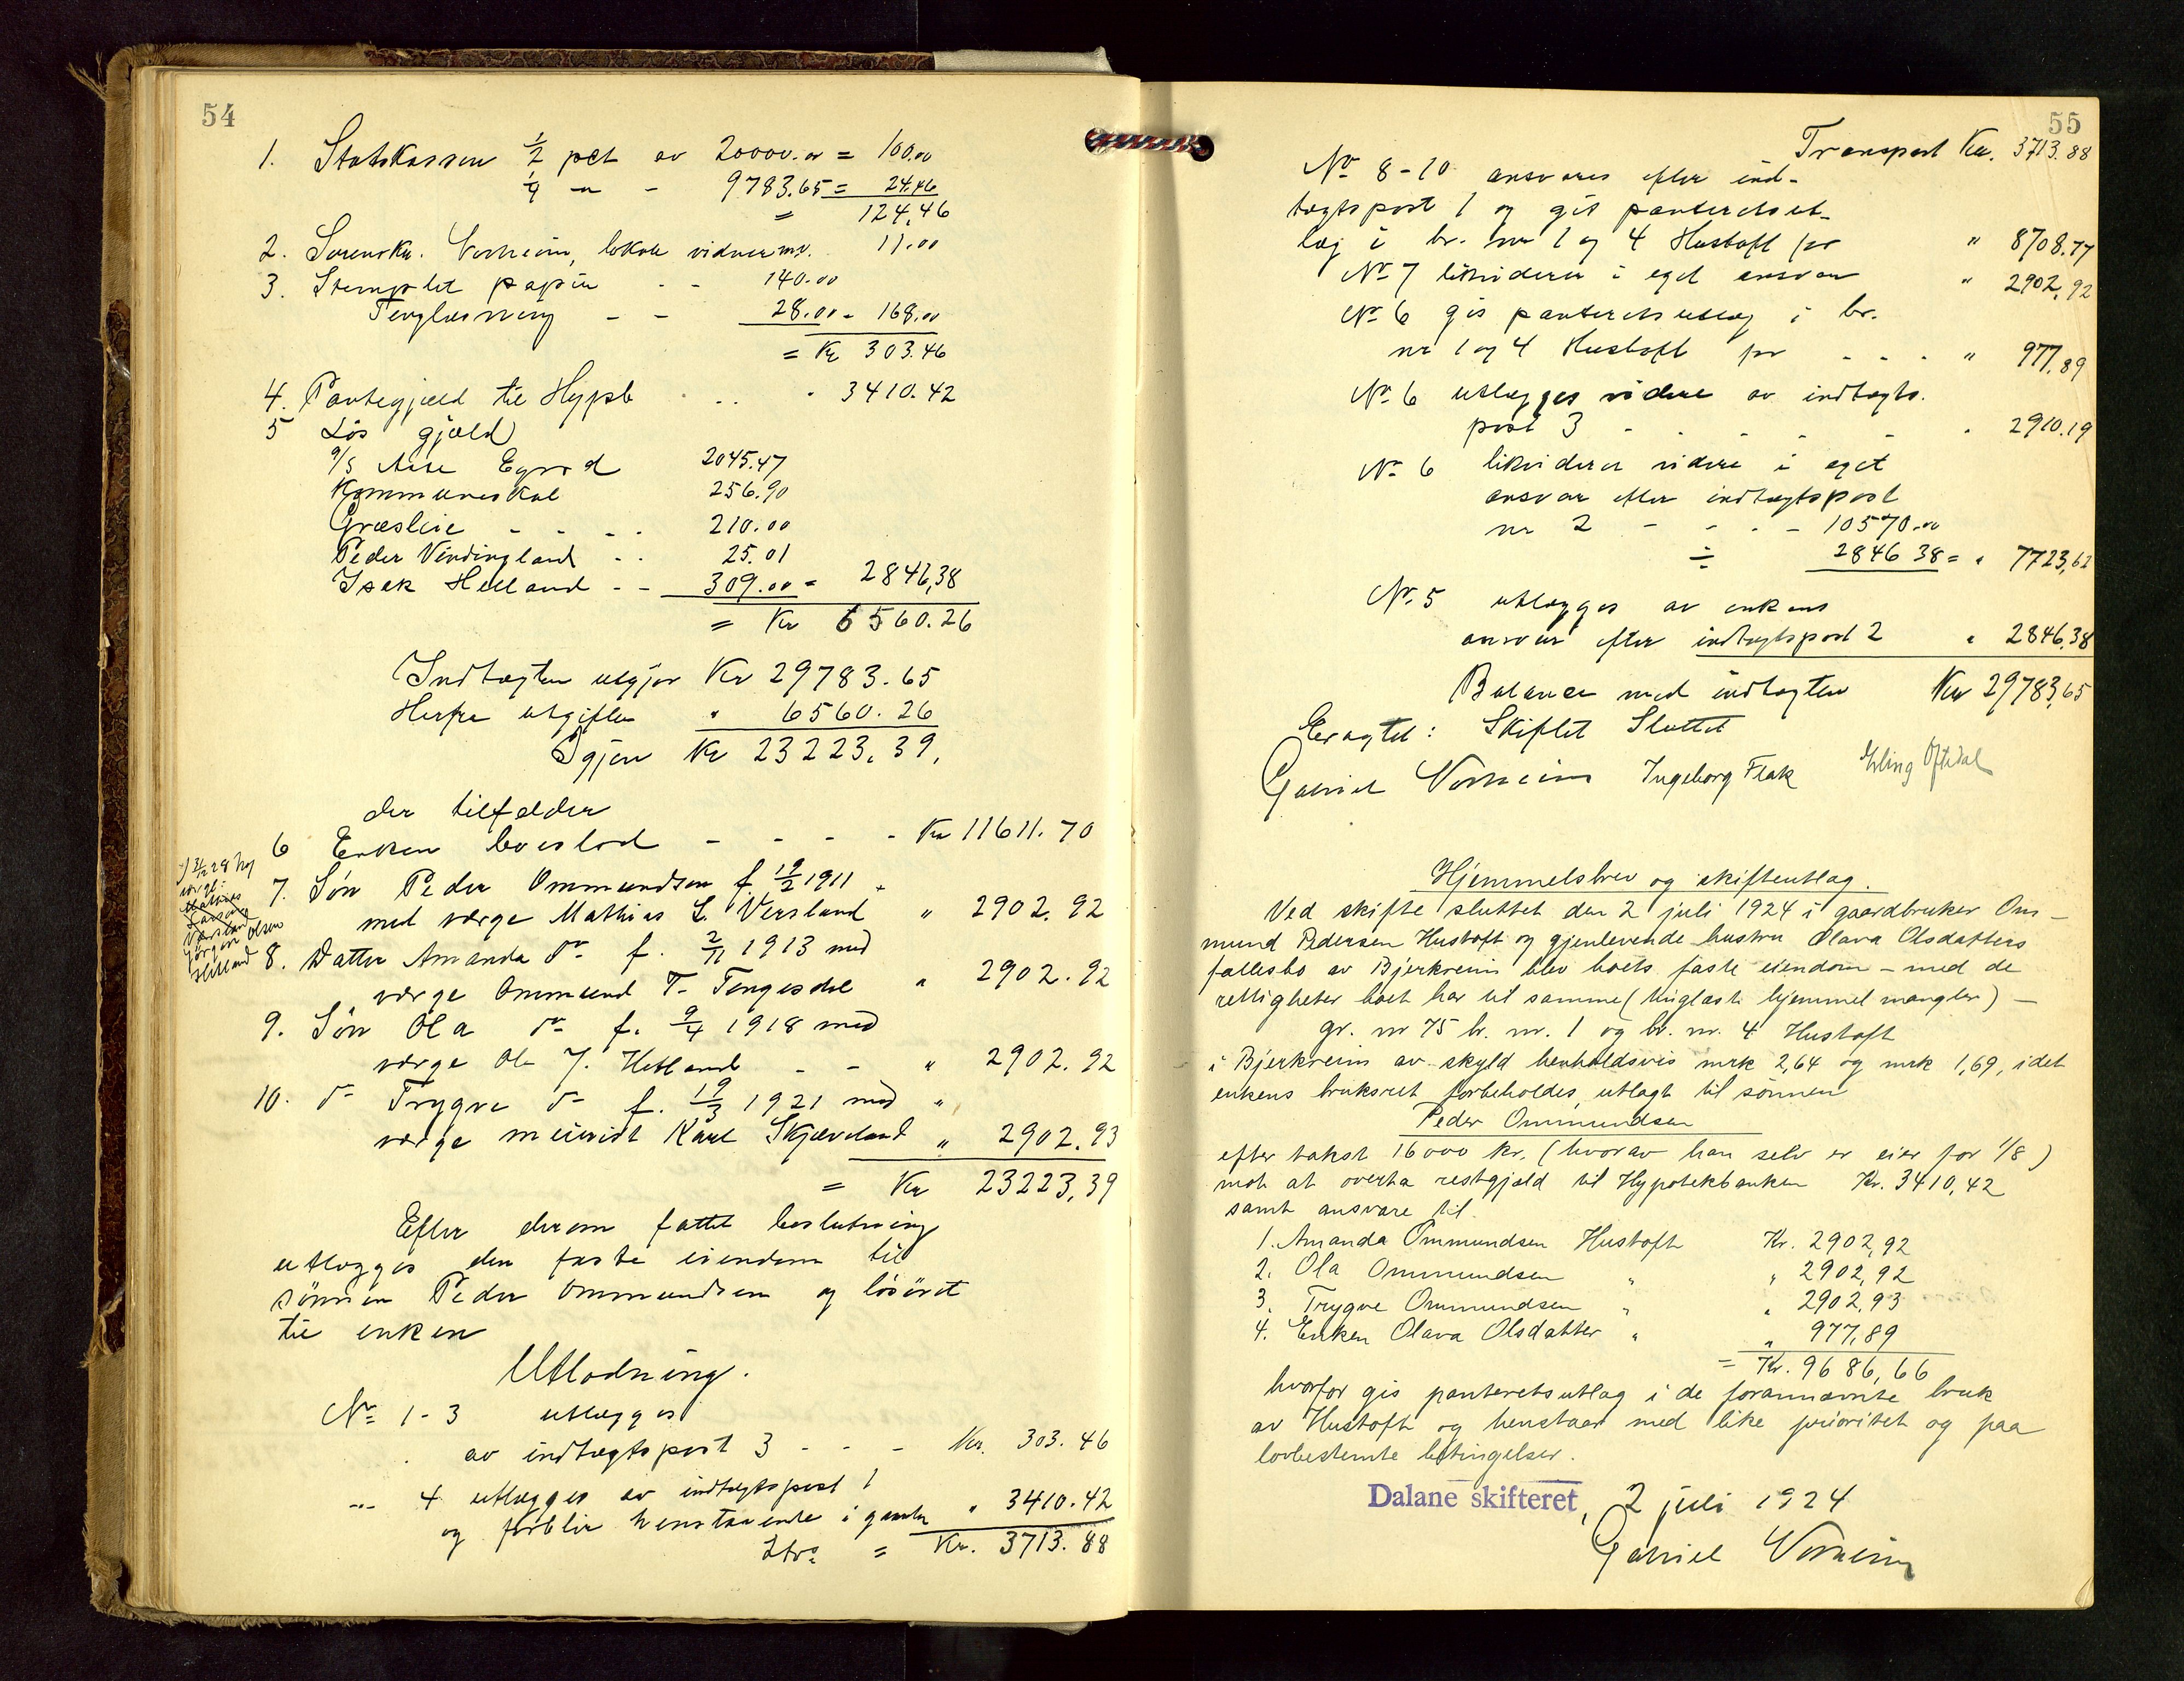 54
1. Statskassen 1/2 pct av 20000.00 = 100.00
1/4 - " - - 9783.65 = 24.46
= 124.46
2. Sorenskr. Vorheim, lokale vidner mv. 11.00
3. Stemplet papir - - 140.00
Tinglæsning - - 28.00 - 168.00
= Kr 303.46
4. Pantegjæld til Hypb. . . . 3410.42
5 Løs gjæld
a/s Aase Egnsd 2045.47
Kommuneskat 256.90
Græsleie - - - . 210.00
Peder Vindingland - . 25.01
Isak Helland - - 309.00 = 2846,38
= Kr 6560.26
Indtægten utgjør Kr 29783.65
Herfra utgiften " 6560.26
Igjen Kr 23223.39.
der tilfalder
6 Enken boeslod - - - - Kr 11611.70
7. Søn Peder Ommundsen f. 19/2 1911
med værge Mathias L. Versland " 2902.92
8. Datter Amanda do f. 2/11 1913 med
værge Ommund T. Tengesdal " 2902.92
9. Søn Ola do f. 9/4 1918 med
værge Ole J. Hetland - - " 2902.92
10. do Trygve do f. 19/3 1921 med "
værge meierist Karl Skjæveland " 2902.93
= Kr 23223,39
værge:
Mathias
Larsen
Versland
Jørgen Olsen
Hetland
Efter derom fattet beslutning
utlægges den faste eiendom til
sønnen Peder Ommundsen og løsøret
til enken
Utlodning.
No 1-3 utlægges
av indtægtspost 3 - - - Kr. 303.46
-"- 4 utlægges av indtægtspost 1
og forblir henstaaende i gaarden " 3410.42
Ltrs = Kr. 3713.88
55
Transport Kr. 3713.88
No 8-10 ansvares efter ind-
tægtspost 1 og gis panteretsut-
læg i br. nr 1 og 4 Hustoft for " 8708.77
No 7 likviderer i eget ansvar " 2902,92
No 6 gis panteretsutlæg i br.
nr 1 og 4 Hustoft for - - - " 977,89
No 6 utlægges videre av indtægts.
post 3 - - - - - " 2910.19
No 6 likviderer videre i eget
ansvar efter indtægtspost
nr 2 - - - - 10570.00
÷ 2846 38 = " 7723,62
No 5 utlægges av enkens
ansvar efter indtægtspost 2 " 2846,38
Balancen med indtægten Kr 29783,65
Eragtet: Skiftet Sluttet
Gabriel Vorheim Ingeborg Flak Erling Oftedal
Hjemmelsbrev og skifteutlæg.
Ved skifte sluttet den 2 juli 1924 i gaardbruker Om-
mund Pedersen Hustoft og gjenlevende hustru Olava Olsdatters
fællesbo av Bjerkreim blev boets faste eiendom - med de
rettigheter boet har til samme (tinglæst hjemmel mangler) -
gr. nr 75 br. nr. 1 og br. nr. 4 Hustoft
i Bjerkreim av skyld henholdsvis mrk 2,64 og mrk 1,69, idet
enkens bruksret forbeholdes, utlagt til sønnen
Peder Ommundsen
efter takst 16000 kr. (hvorav han selv er eier for 1/8)
mot at overta restgjæld til Hypotekbanken Kr. 3410,42
samt ansvare til
1. Amanda Ommundsen Hustoft Kr. 2902,92
2. Ola Ommundsen " " 2902,92
3. Trygve Ommundsen " " 2902,93
4. Enken Olava Olsdatter " " 977,89
= Kr. 9686,66
hvorfor gis panteretsutlæg i de forannævnte bruk
av Hustoft og henstaar med like prioritet og paa
lovbestemte betingelser.
Dalane skifteret, 2 juli 1924
Gabriel Vorheim